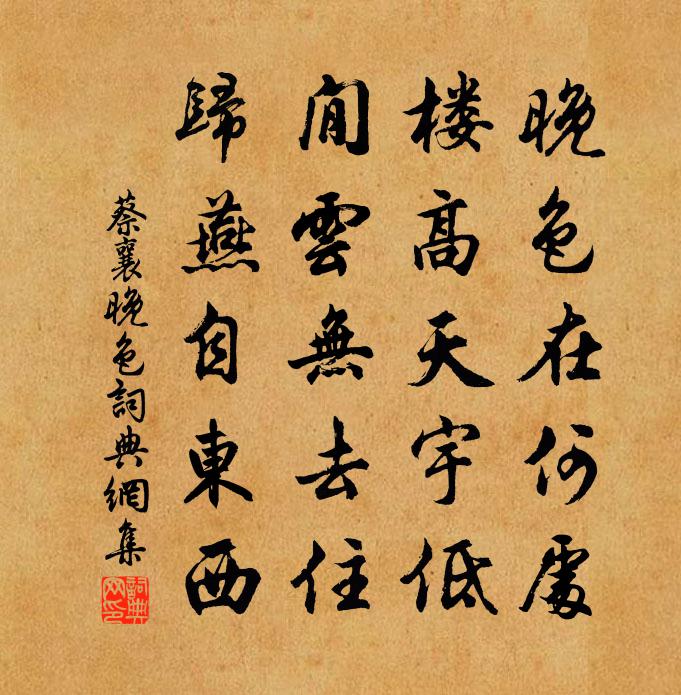 晚色在何處
楼高天宇低
閒雲無去住
歸燕自東西
蔡襄晚色詞典網集
詞典網印